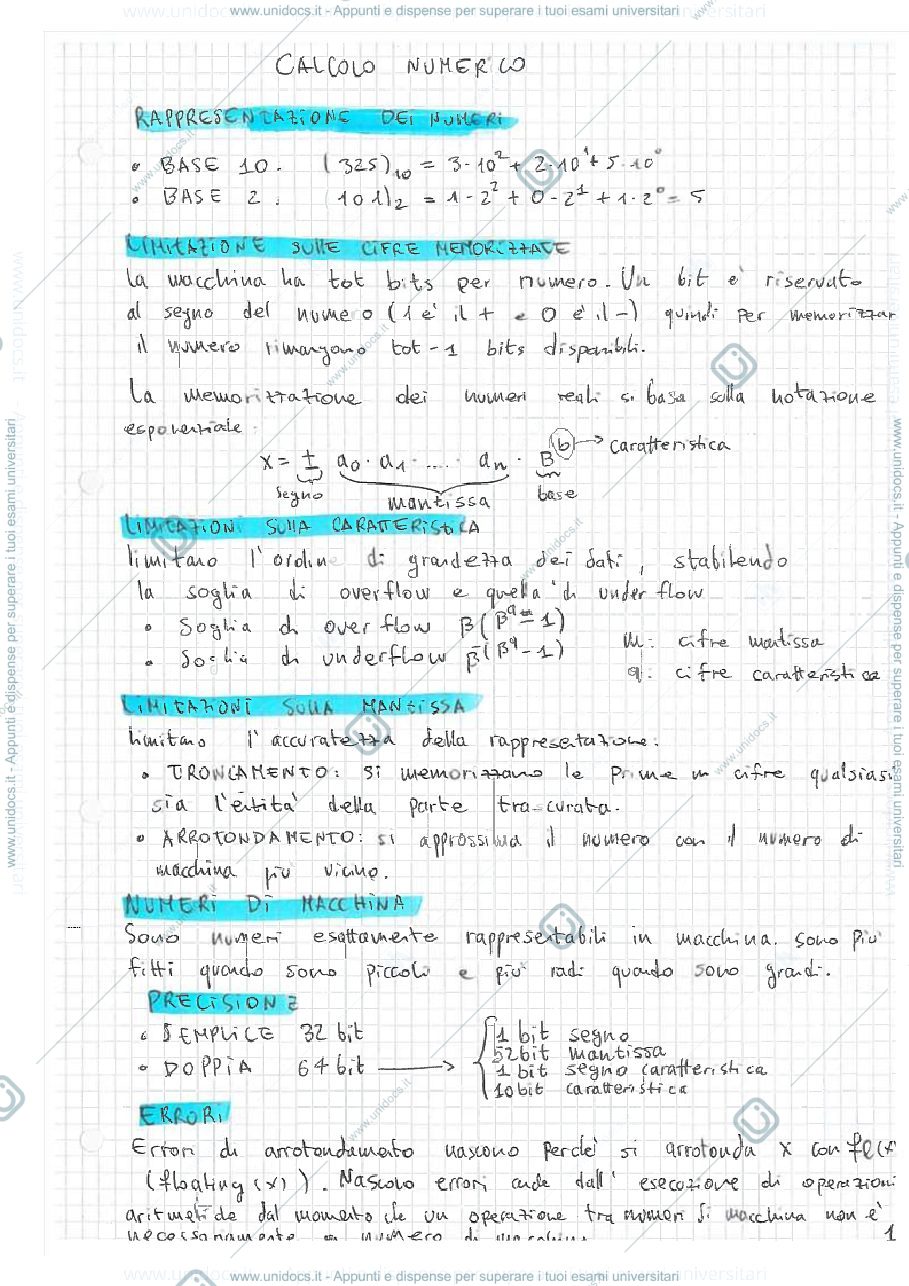 www.unidocs.it - Appunti e dispense per superare i tuoi esami universitari
CALCOLO NUMERICO
RAPPRESENTAZIONE DEI NUMERI
• BASE 10. (325)₁₀ = 3·10² + 2·10¹ + 5·10⁰
• BASE 2. (101)₂ = 1·2² + 0·2¹ + 1·2⁰ = 5
LIMITAZIONE SULLE CIFRE MEMORIZZATE
La macchina ha tot bits per numero. Un bit è riservato
al segno del numero (1 è il + e 0 è il -) quindi per memorizzar
il numero rimangono tot-1 bits disponibili.
La memorizzazione dei numeri reali si basa sulla notazione
esponenziale:
x = ± a₀·a₁·....·aₙ · B^b → caratteristica
segno mantissa base
LIMITAZIONI SULLA CARATTERISTICA
limitano l'ordine di grandezza dei dati, stabilendo
la soglia di overflow e quella di underflow
• Soglia di overflow β(β^q - 1)
• Soglia di underflow β^-(β^q - 1)
m: cifre mantissa
q: cifre caratteristica
LIMITAZIONI SULLA MANTISSA
limitano l'accuratezza della rappresentazione:
• TRONCAMENTO: si memorizzano le prime m cifre qualsiasi
sia l'entità della parte trascurata.
• ARROTONDAMENTO: si approssima il numero con il numero di
macchina più vicino.
NUMERI DI MACCHINA
Sono numeri esattamente rappresentabili in macchina. Sono più
fitti quando sono piccoli e più radi quando sono grandi.
PRECISIONE
• SEMPLICE 32 bit
• DOPPIA 64 bit →
1 bit segno
52 bit mantissa
1 bit segno caratteristica
10 bit caratteristica
ERRORI
Errori di arrotondamento nascono perché si arrotonda x con fl(x
(floating (x)). Nascono errori anche dall'esecuzione di operazioni
aritmetiche dal momento che un operazione tra numeri di macchina non è
necessariamente un numero di macchina
1
www.unidocs.it - Appunti e dispense per superare i tuoi esami universitari